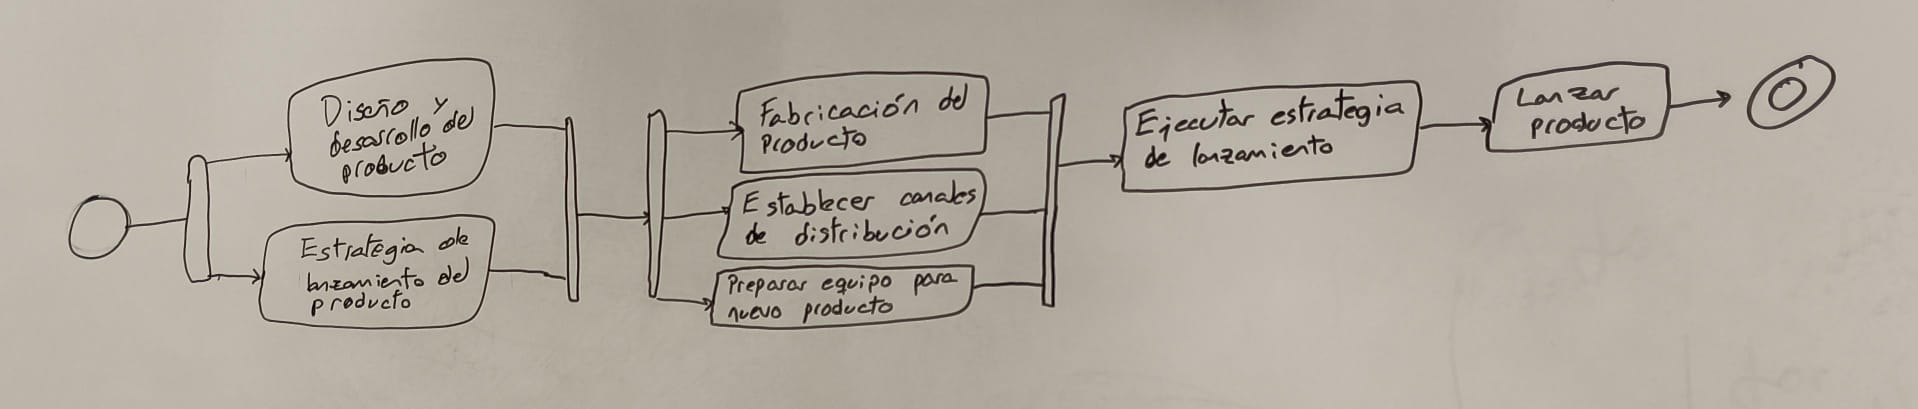 Diseño y
desarrollo del
producto
Estrategia de
lanzamiento del
producto
Fabricación del
Producto
Establecer canales
de distribución
Preparar equipo para
nuevo producto
Ejecutar estrategia
de lanzamiento
Lanzar
producto